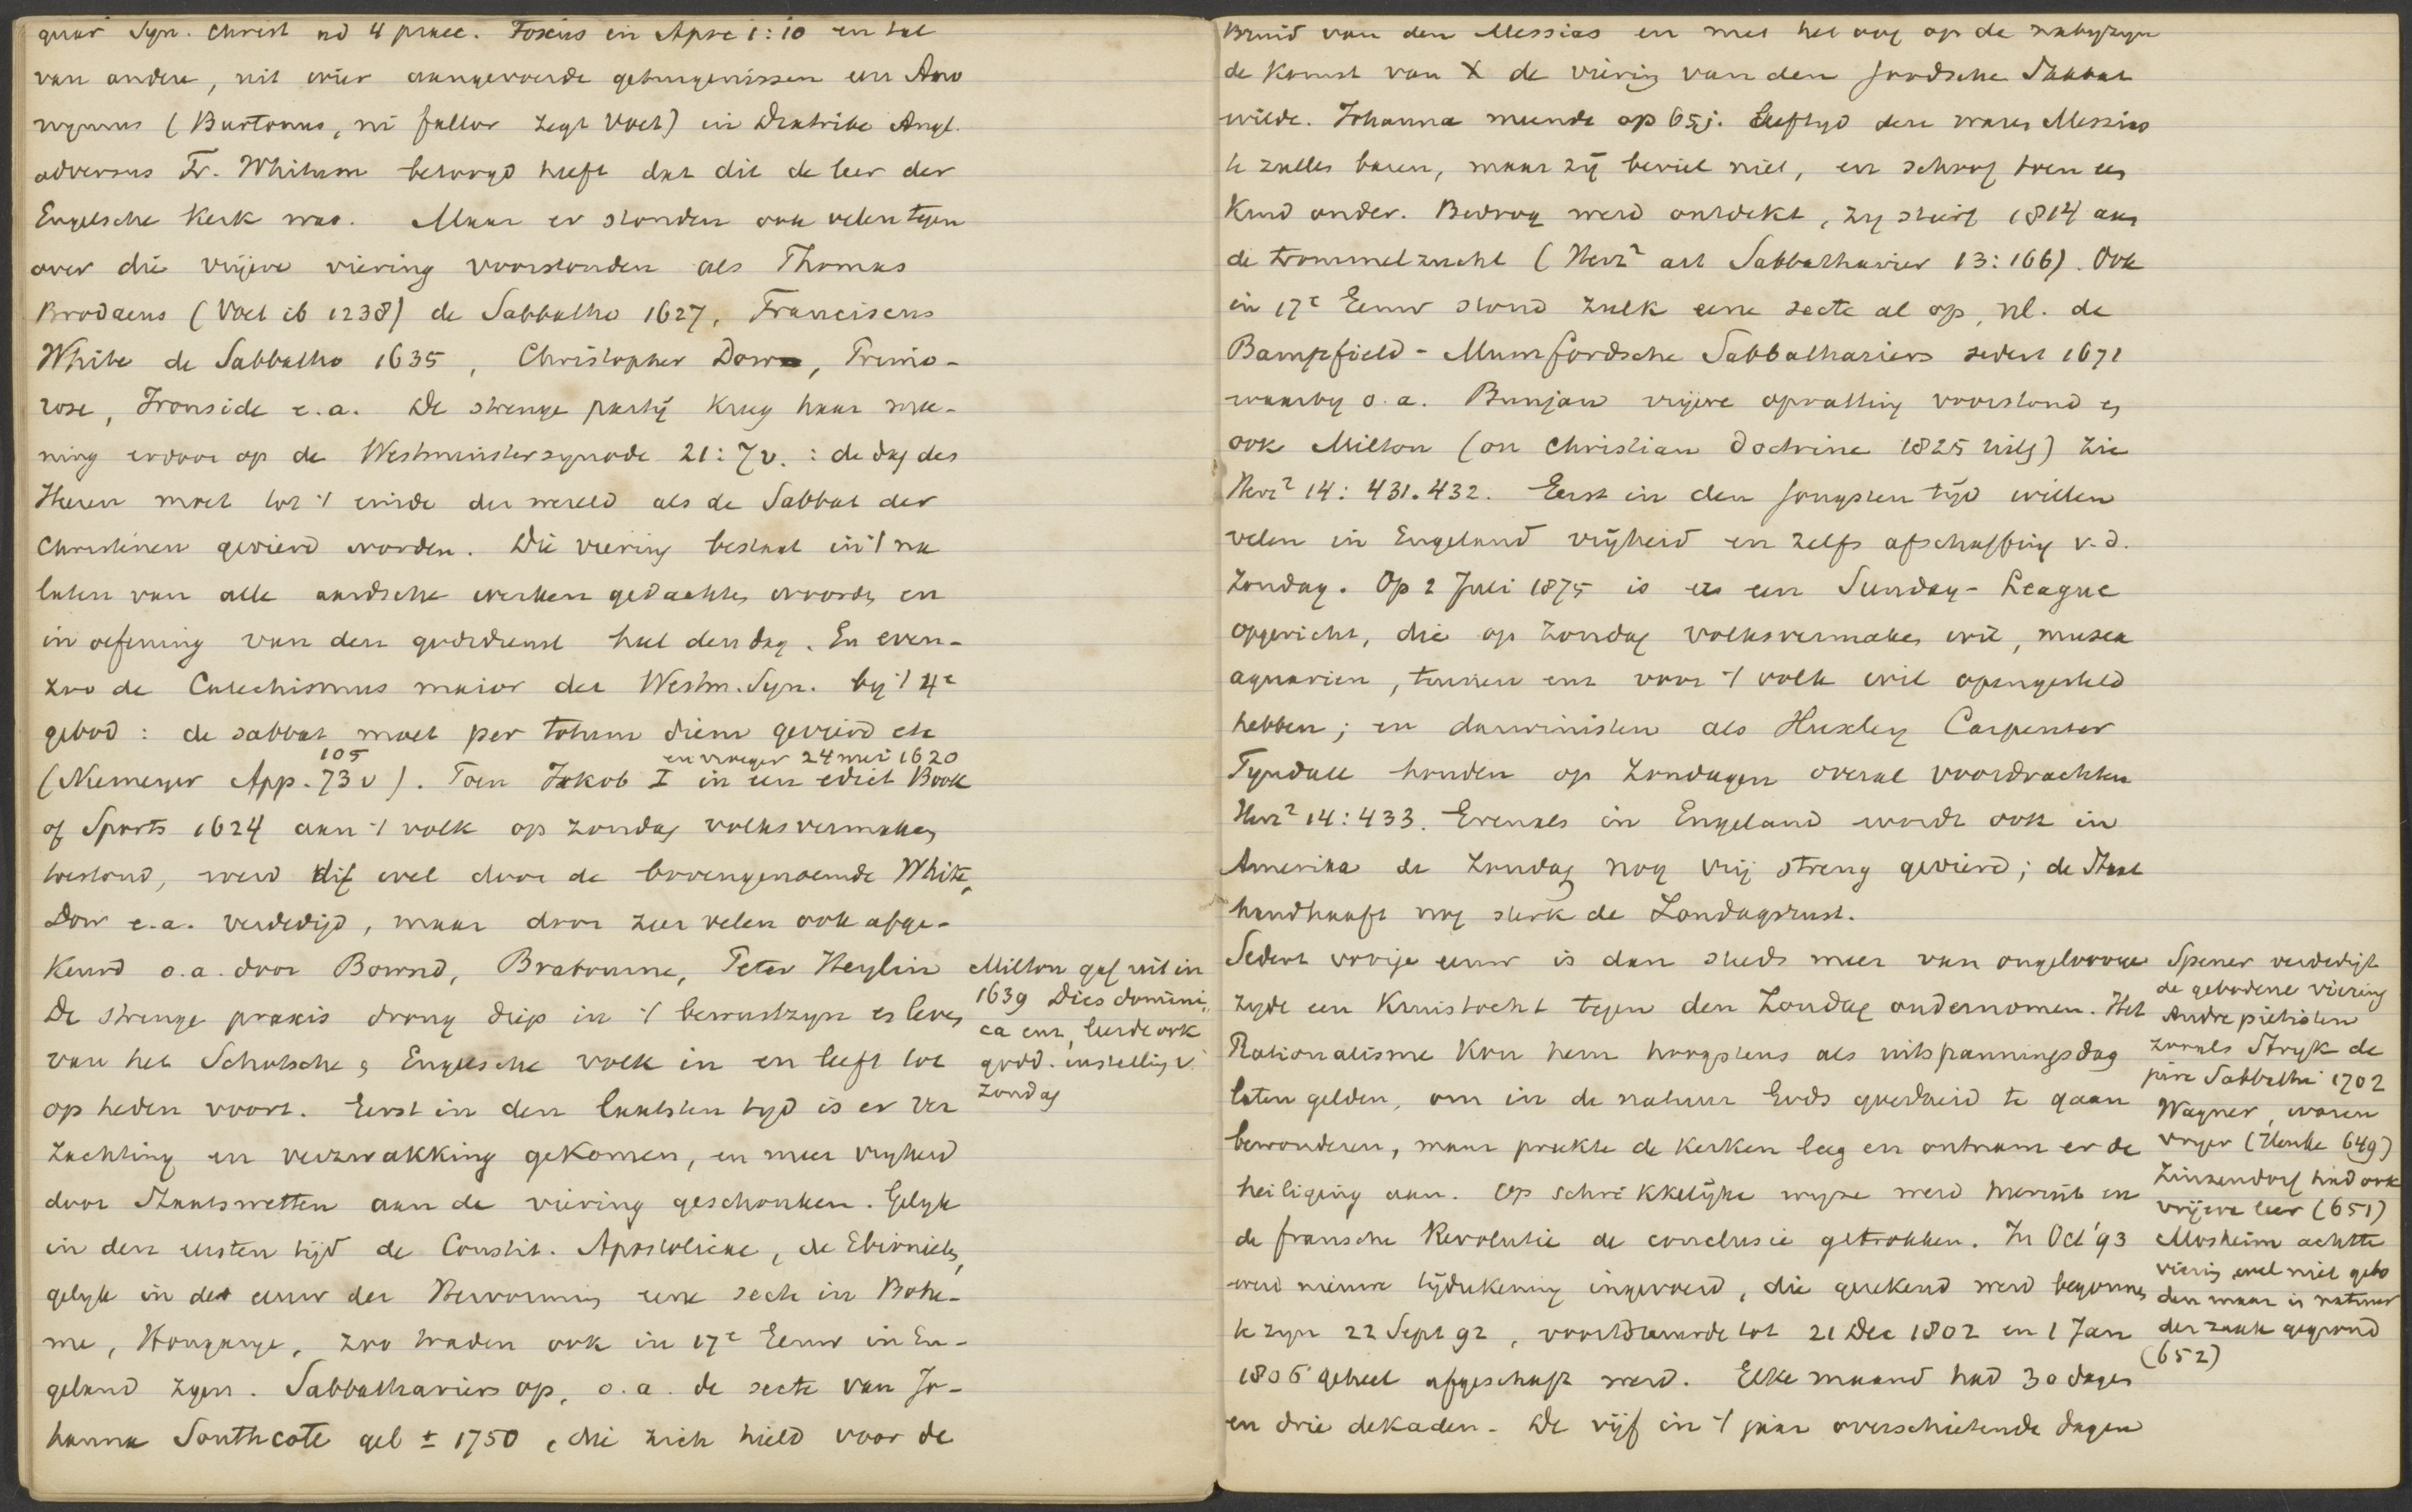 quar Syn. Christ ad 4 praec. Foxius in Apoc 1:10 en tal
van andere, uit wier aangevoerde getuigenissen een Ano
nymus (Burtonus, ni fallor zegt Voet) in Diatribe Angl.
adversus Fr. Whitum betoogd heeft dat dit de leer der
Engelsche Kerk was. Maar er stonden ook velen tegen
over die vrijere viering voorstonden als Thomas
Brodaeus (Voet ib 1238) de Sabbatho 1627, Franciscus
White de Sabbatho 1635, Christopher Dow, Primo-
rose, Ironside e.a. De strenge partij kreeg haar mee-
ning erdoor op de Westminstersynode 21:7v. : de dag des
Heeren moet tot 't einde der wereld als de Sabbat der
Christenen gevierd worden. Die viering bestaat in 't na
laten van alle aardsche werken gedachten woorden en
in oefening van den godsdienst heel den dag. En even-
zoo de Catechismus maior der Westm. Syn. by 't 4e
gebod : de sabbat moet per totum diem gevierd etc
105
en vroeger 24 mei 1620
(Niemeyer App. 73v). Toen Jakob I in een edict Book
of Sports 1624 aan 't volk op zondag volksvermaken
toestond, werd dit wel door de bovengenoemde White,
Dow e.a. verdedigd, maar door zeer velen ook afge-
keurd o.a. door Bownd, Brabourne, Peter Heylin
De strenge praxis drong diep in 't bewustzyn en leven
van het Schotsche en Engelsche volk in en leeft tot
op heden voort. Eerst in den laatsten tyd is er ver
zachting en verzwakking gekomen, en meer vryheid
door Staatswetten aan de viering geschonken. Gelyk
in den eersten tijd de Constit. Apostolicae, de Ebionieten,
gelyk in de eeuw der Hervorming eene secte in Bohe-
me, Hongarye, zoo traden ook in 17e Eeuw in En-
geland zgen. Sabbathariers op, o.a. de secte van Jo-
hanna Southcote geb ± 1750, die zich hield voor de
Milton gaf uit in
1639 Dies domini
ca enz, leerde ook
godd. instelling v.
Zondag
Bruid van den Messias en met het oog op de nabyzyn
de komst van X de viering van den Joodsche Sabbat
wilde. Johanna meende op 65j. Leeftyd den waren Messias
te zullen baren, maar zij beviel niet, en schoof toen een
Kind onder. Bedrog werd ontdekt, zy stierf 1814 aan
de trommelzucht (Herz² art Sabbatharier 13:166). Ook
in 17e Eeuw stond zulk eene secte al op, nl. de
Bampfield-Mumfordsche Sabbathariers sedert 1671
waarby o.a. Bunjan vrijere opvatting voorstond en
ook Milton (on Christian doctrine 1825 uitg) zie
Herz² 14: 431.432. Eerst in den jongsten tijd willen
velen in Engeland vrijheid en zelfs afschaffing v.d.
Zondag. Op 2 Juli 1875 is er een Sunday-League
opgericht, die op Zondag volksvermaken wil, musea
aquarien, tuinen enz voor 't volk wil opengesteld
hebben; en darwinisten als Huxley Carpenter
Tyndall houden op Zondagen overal voordrachten
Herz² 14:433. Evenals in Engeland wordt ook in
Amerika de Zondag nog vrij streng gevierd; de Staat
handhaaft nog sterk de Zondagsrust.
Sedert vorige eeuw is dan steeds meer van ongeloovige
zyde een Kruistocht tegen den Zondag ondernomen. Het
Rationalisme kon hem hoogstens als uitspanningsdag
laten gelden, om in de natuur Gods goedheid te gaan
bewonderen, maar preekte de kerken leeg en ontnam er de
heiliging aan. Op schrikkelijke wyze werd hieruit in
de fransche Revolutie de conclusie getrokken. In Oct '93
werd nieuwe tijdrekening ingevoerd, die gerekend werd begonnen
te zyn 22 Sept 92, voortduurde tot 21 Dec 1802 en 1 Jan
1806 geheel afgeschaft werd. Elke maand had 30 dagen
en drie dekaden. De vijf in 't jaar overschietende dagen
Spener verdedigt
de gebodene viering
Andre pietisten
zooals Stryk de
jure Sabbathi 1702
Wagner, waren
vryer (Henke 649)
Zinzendorf had ook
vrijere leer (651)
Mosheim achtte
viering wel niet gebo
den maar in natuur
der zaak gegrond
(652)